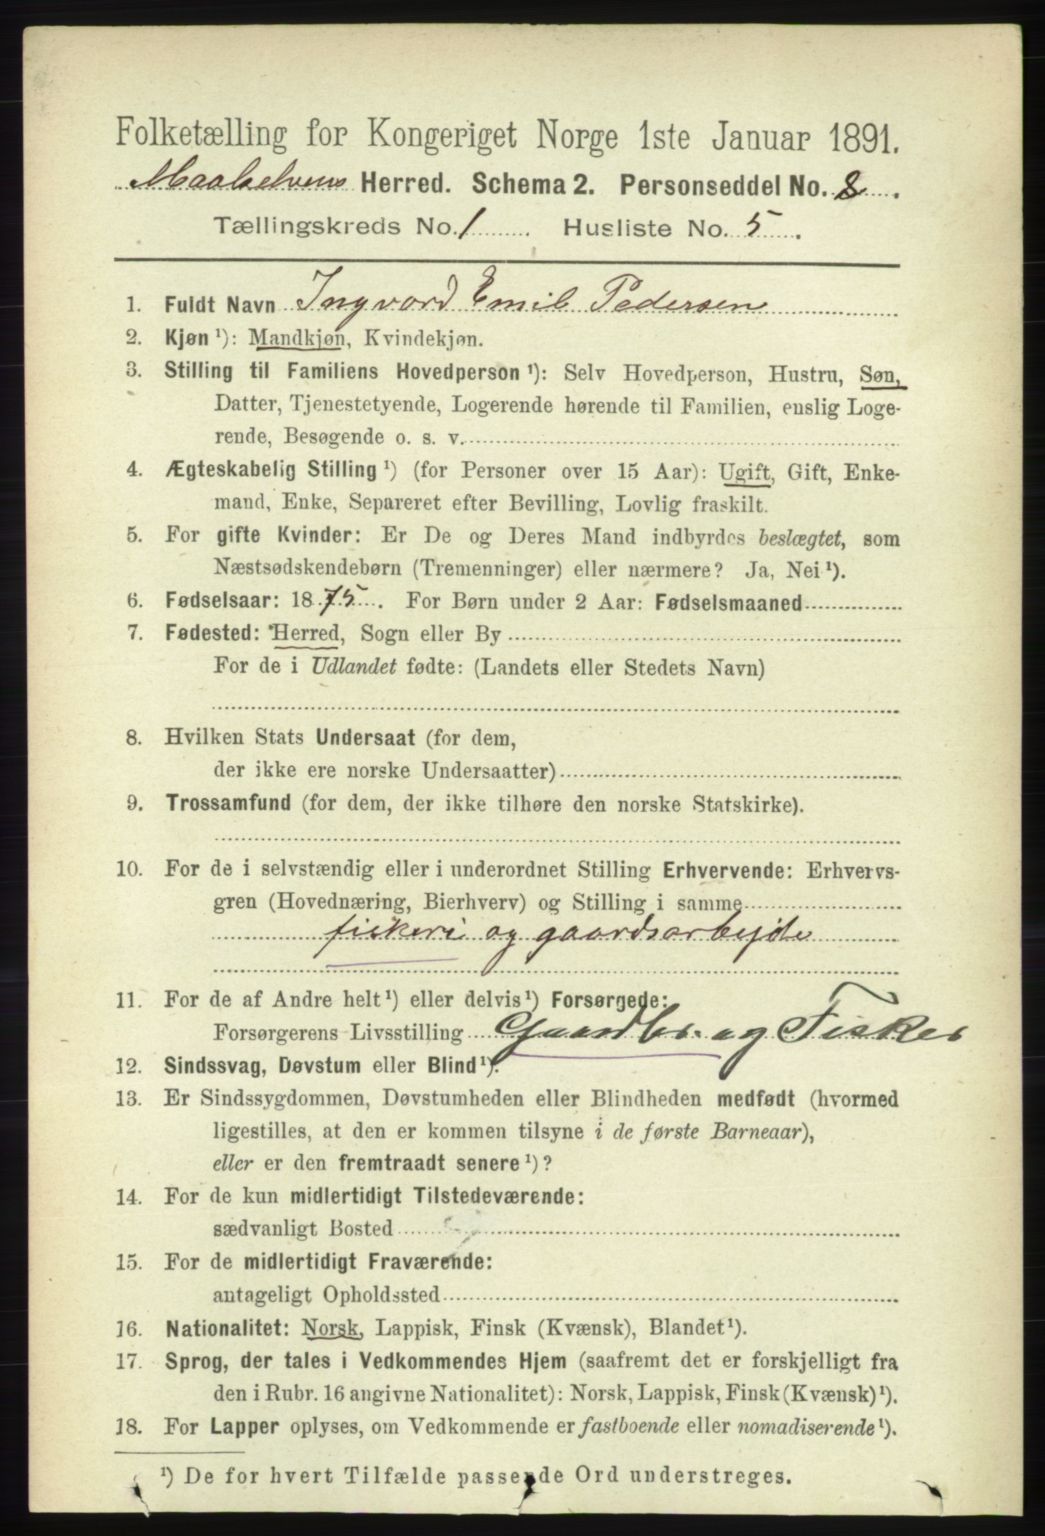 Folketælling for Kongeriget Norge 1ste Januar 1891.
Maalselvens Herred. Schema 2. Personseddel No. 8.
Tællingskreds No. 1. Husliste No. 5.
1. Fuldt Navn Ingvard Emil Pedersen
2. Kjøn ¹): Mandkjøn, Kvindekjøn.
3. Stilling til Familiens Hovedperson ¹): Selv Hovedperson, Hustru, Søn,
Datter, Tjenestetyende, Logerende hørende til Familien, enslig Loge-
rende, Besøgende o. s. v.
4. Ægteskabelig Stilling ¹) (for Personer over 15 Aar): Ugift, Gift, Enke-
mand, Enke, Separeret efter Bevilling, Lovlig fraskilt.
5. For gifte Kvinder: Er De og Deres Mand indbyrdes beslægtet, som
Næstsødskendebørn (Tremenninger) eller nærmere? Ja, Nei ¹).
6. Fødselsaar: 1875. For Børn under 2 Aar: Fødselsmaaned
7. Fødested: Herred, Sogn eller By
For de i Udlandet fødte: (Landets eller Stedets Navn)
8. Hvilken Stats Undersaat (for dem,
der ikke ere norske Undersaatter)
9. Trossamfund (for dem, der ikke tilhøre den norske Statskirke).
10. For de i selvstændig eller i underordnet Stilling Erhvervende: Erhvervs-
gren (Hovednæring, Bierhverv) og Stilling i samme
fiskeri og gaardsarbejde
11. For de af Andre helt ¹) eller delvis ¹) Forsørgede:
Forsørgerens Livsstilling Gaardbr. og Fisker
12. Sindssvag, Døvstum eller Blind ¹).
13. Er Sindssygdommen, Døvstumheden eller Blindheden medfødt (hvormed
ligestilles, at den er kommen tilsyne i de første Barneaar),
eller er den fremtraadt senere ¹)?
14. For de kun midlertidigt Tilstedeværende:
sædvanligt Bosted
15. For de midlertidigt Fraværende:
antageligt Opholdssted
16. Nationalitet: Norsk, Lappisk, Finsk (Kvænsk), Blandet ¹).
17. Sprog, der tales i Vedkommendes Hjem (saafremt det er forskjelligt fra
den i Rubr. 16 angivne Nationalitet): Norsk, Lappisk, Finsk (Kvænsk) ¹).
18. For Lapper oplyses, om Vedkommende er fastboende eller nomadiserende ¹).
¹) De for hvert Tilfælde passende Ord understreges.